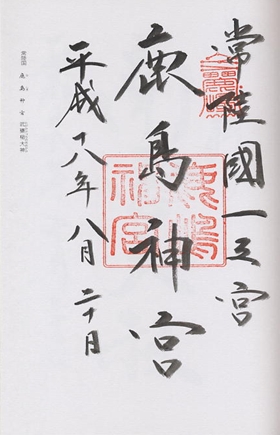 常陸國一之宮
鹿島神宮
鹿嶋
神宮
平成十八年八月二十日
常陸国 鹿島神宮 武甕槌大神